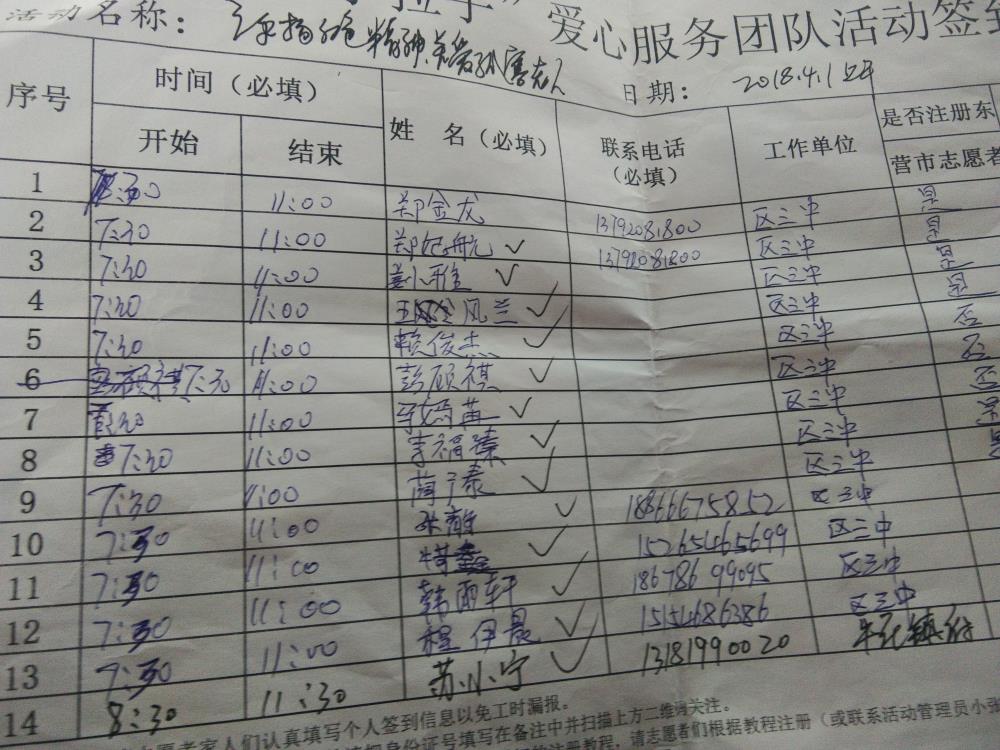 爱心服务团队活动签到
活动名称： 精神.关爱 老人
日期： 2018.4.1
序号 时间（必填） 姓 名（必填） 联系电话（必填） 工作单位 是否注册东营市志愿者
开始 结束
1 8:30 11:00 郑金龙 13792081800 区三中 是
2 7:30 11:00 13792081800 区三中 是
3 7:30 11:00 姜小雅 区三中 是
4 7:30 11:00 风兰 区三中 是
5 7:30 11:00 赖俊杰 区三中 否
6 7:30 11:00 彭硕祺 区三中 否
7 7:30 11:00 区三中 否
8 7:30 11:00 李福臻 区三中 是
9 7:30 11:00 区三中 是
10 7:30 11:00 18866675852 区三中
11 7:30 11:00 15265465699 区三中
12 7:30 11:00 韩雨轩 18678699095 区三中
13 7:30 11:00 程伊晨 15154686386 区三中
14 8:30 11:30 苏小宁 13181990020 镇府
愿者家人们认真填写个人签到信息以免工时漏报。
身份证号填写在备注中并扫描上方二维码关注。
注册教程，请志愿者们根据教程注册（或联系活动管理员小张